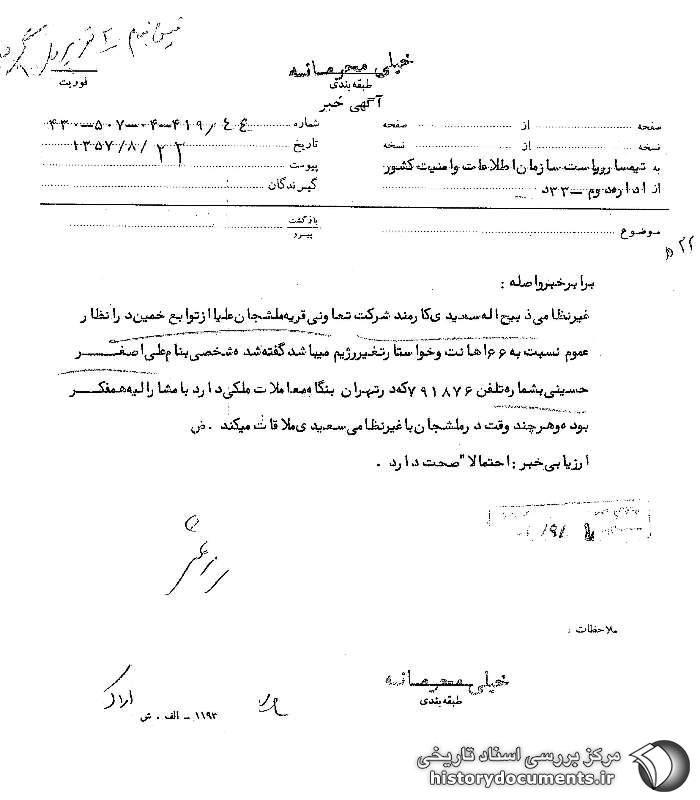 خیلی محرمانه
طبقه‌بندی
فوریت
آگهی خبر
صفحه ............ از ............ صفحه
شماره ۴۳۰-۵۰۷-۰۴-۴۱۹/۴۴
نسخه ............ از ............ نسخه
تاریخ ۱۳۵۷/۸/۲۲
به تیمسار ریاست سازمان اطلاعات و امنیت کشور
پیوست
از اداره دوم -۳۳د
گیرندگان
موضوع
بازگشت
پیرو
برابر خبر واصله :
غیرنظامی ذبیح اله سعیدی کارمند شرکت تعاونی قریه ملشجان علیا از توابع خمین در انظار
عموم نسبت به ۶۶ اهانت و خواستار تغیر رژیم میباشد گفته شده شخصی بنام علی اصغر
حسینی بشماره تلفن ۷۹۱۸۷۶ که در تهران بنگاه معاملات ملکی دارد با مشارالیه همفکر
بوده و هر چند وقت در ملشجان با غیرنظامی سعیدی ملاقات میکند . ض
ارزیابی خبر : احتمالا" صحت دارد .
ملاحظات :
خیلی محرمانه
طبقه‌بندی
اراک
۱۱۹۳ - الف . ش
مرکز بررسی اسناد تاریخی
historydocuments.ir